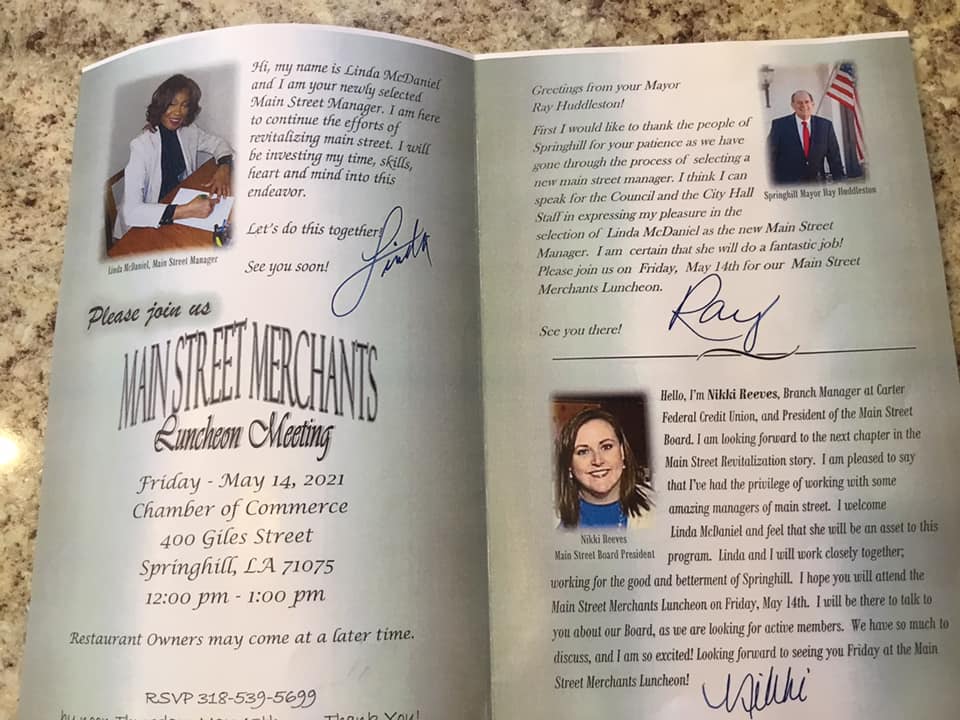 Hi, my name is Linda McDaniel
and I am your newly selected
Main Street Manager. I am here
to continue the efforts of
revitalizing main street. I will
be investing my time, skills,
heart and mind into this
endeavor.
Let's do this together!
See you soon!
Linda
Linda McDaniel, Main Street Manager
Please join us
MAIN STREET MERCHANTS
Luncheon Meeting
Friday - May 14, 2021
Chamber of Commerce
400 Giles Street
Springhill, LA 71075
12:00 pm - 1:00 pm
Restaurant Owners may come at a later time.
RSVP 318-539-5699
by noon Thursday, May 13th. Thank You!
Greetings from your Mayor
Ray Huddleston!
First I would like to thank the people of
Springhill for your patience as we have
gone through the process of selecting a
new main street manager. I think I can
speak for the Council and the City Hall
Staff in expressing my pleasure in the
selection of Linda McDaniel as the new Main Street
Manager. I am certain that she will do a fantastic job!
Please join us on Friday, May 14th for our Main Street
Merchants Luncheon.
See you there!
Ray
Springhill Mayor Ray Huddleston
Hello, I'm Nikki Reeves, Branch Manager at Carter
Federal Credit Union, and President of the Main Street
Board. I am looking forward to the next chapter in the
Main Street Revitalization story. I am pleased to say
that I've had the privilege of working with some
amazing managers of main street. I welcome
Linda McDaniel and feel that she will be an asset to this
program. Linda and I will work closely together;
working for the good and betterment of Springhill. I hope you will attend the
Main Street Merchants Luncheon on Friday, May 14th. I will be there to talk to
you about our Board, as we are looking for active members. We have so much to
discuss, and I am so excited! Looking forward to seeing you Friday at the Main
Street Merchants Luncheon!
Nikki
Nikki Reeves
Main Street Board President